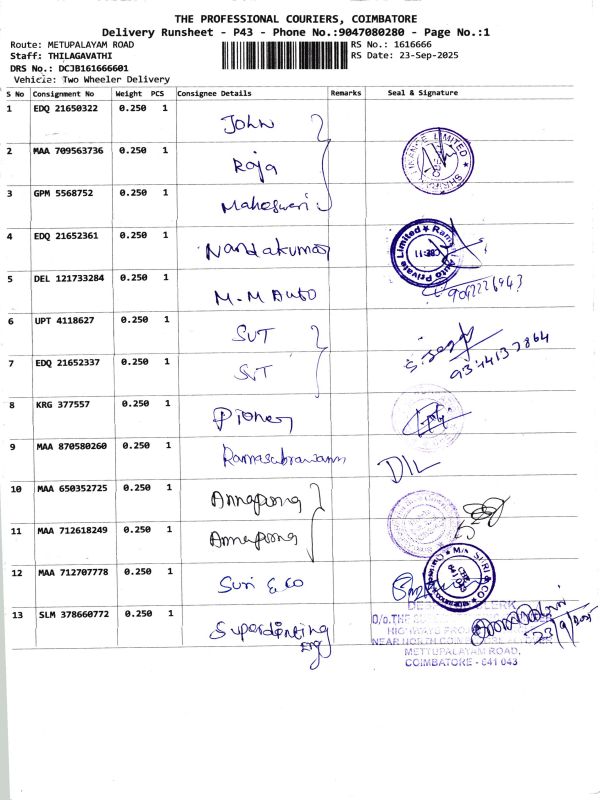 THE PROFESSIONAL COURIERS, COIMBATORE
Delivery Runsheet - P43 - Phone No.:9047080280 - Page No.:1
Route: METUPALAYAM ROAD RS No.: 1616666
Staff: THILAGAVATHI RS Date: 23-Sep-2025
DRS No.: DCJB161666601
Vehicle: Two Wheeler Delivery
S No Consignment No Weight PCS Consignee Details Remarks Seal & Signature
1 EDQ 21650322 0.250 1 John
2 MAA 709563736 0.250 1 Raja
3 GPM 5568752 0.250 1 Maheswari
4 EDQ 21652361 0.250 1 Nandakumar
5 DEL 121733284 0.250 1 M.M Auto
6 UPT 4118627 0.250 1 SVT
7 EDQ 21652337 0.250 1 SVT
8 KRG 377557 0.250 1 Pioner
9 MAA 870580260 0.250 1 DIL
10 MAA 650352725 0.250 1 Annapurna
11 MAA 712618249 0.250 1 Annapurna
12 MAA 712707778 0.250 1 Suri & CO
13 SLM 378660772 0.250 1
CLERK
O/o.THE
NEAR NORTH
METTUPALAYAM ROAD,
COIMBATORE - 641 043